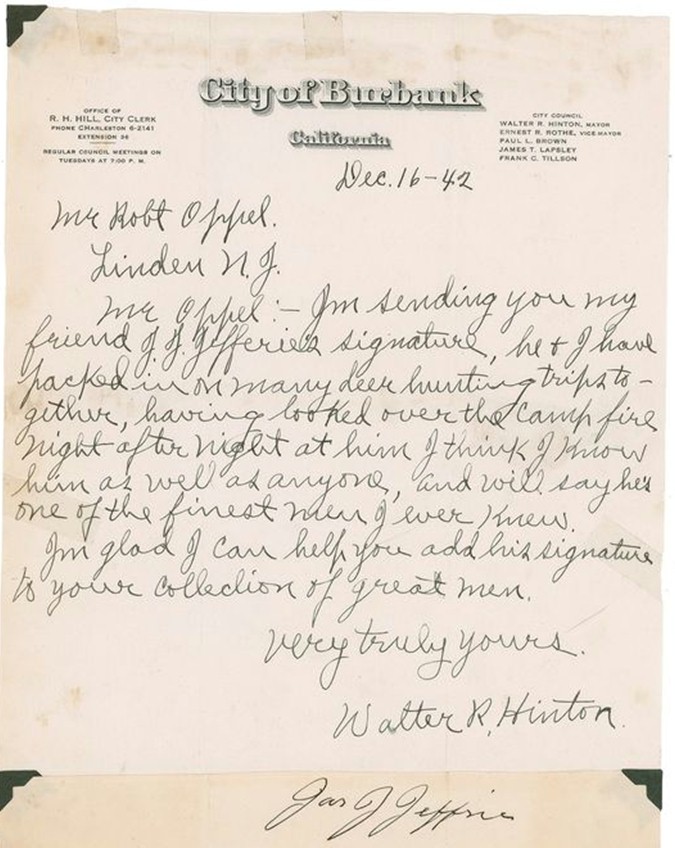 City of Burbank
California
OFFICE OF
R. H. HILL, CITY CLERK
PHONE CHARLESTON 6-2141
EXTENSION 36
REGULAR COUNCIL MEETINGS ON
TUESDAYS AT 7:00 P. M.
CITY COUNCIL
WALTER R. HINTON, MAYOR
ERNEST R. ROTHE, VICE MAYOR
PAUL L. BROWN
JAMES T. LAPSLEY
FRANK C. TILLSON
Dec. 16-42
Mr Robt Oppel.
Linden N.J.
Mr Oppel:- Im sending you my
friend J.J. Jefferies signature, he & I have
packed in on many deer hunting trips to-
gether, having looked over the camp fire
night after night at him I think I know
him as well as anyone, and will say he's
one of the finest men I ever knew.
Im glad I can help you add his signature
to your collection of great men.
Very truly yours.
Walter R. Hinton.
Jas J Jeffries